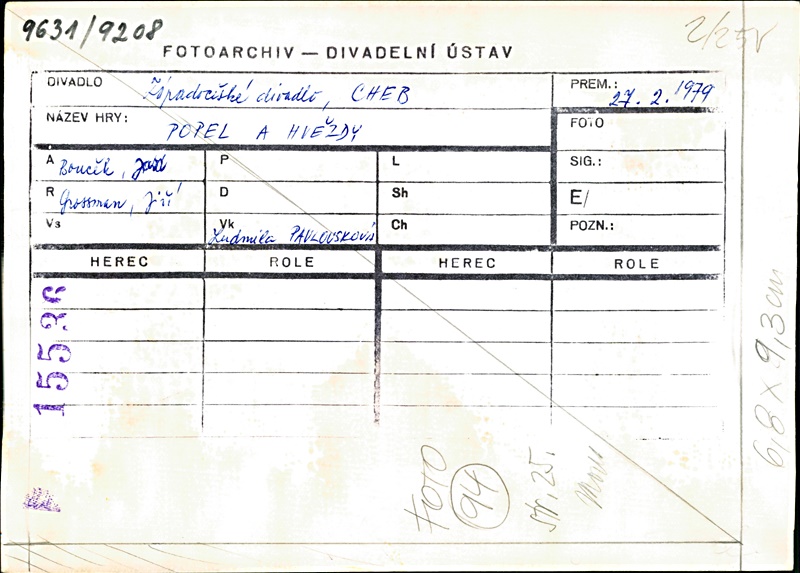 9631/9208
2/25V
FOTOARCHIV — DIVADELNÍ ÚSTAV
DIVADLO Západočeské divadlo, CHEB
PREM.: 27. 2. 1979
NÁZEV HRY: POPEL A HVĚZDY
FOTO
A Boučík,
P
L
SIG.:
R Grossman, Jiří
D
Sh
E/
Vs
Vk Ludmila PAVLOUSKOVÁ
Ch
POZN.:
HEREC ROLE HEREC ROLE
15536
6,8 x 9,3 cm
FOTO
94
str. 25.